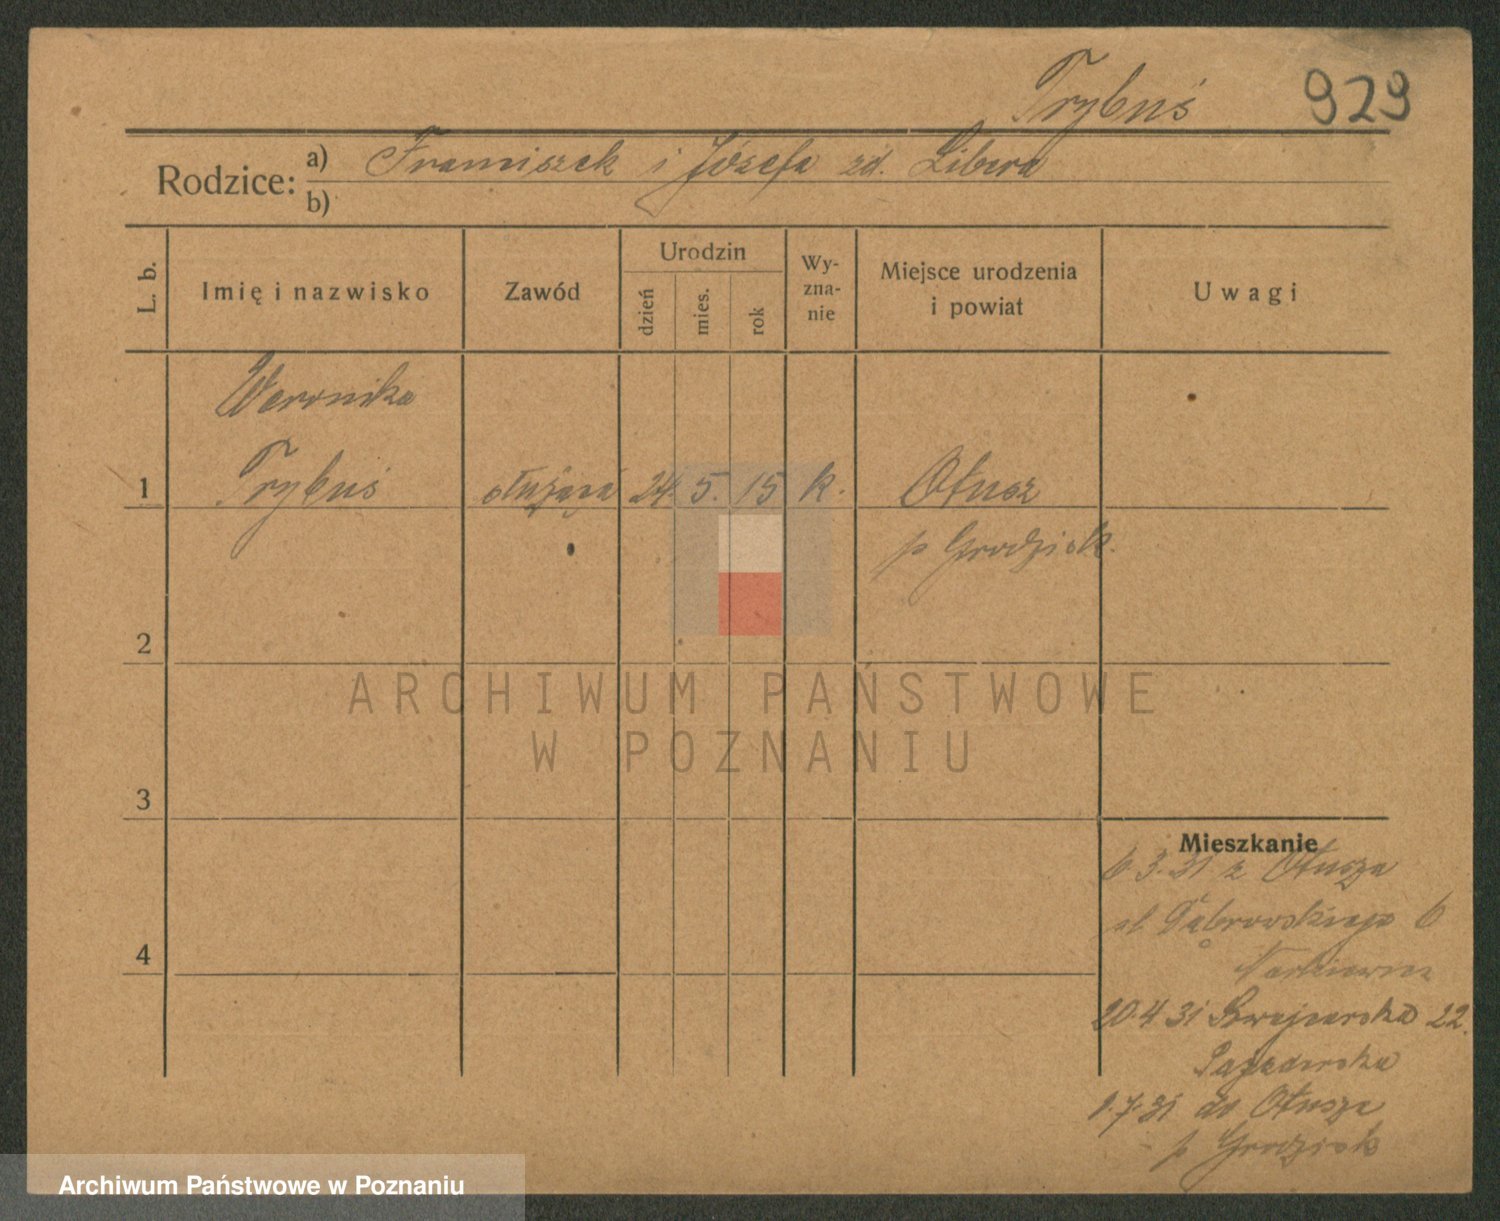 Trybuś 929
Rodzice: a) Franciszek i Józefa zd. Libera
b)
L. b.
Imię i nazwisko
Zawód
Urodzin
dzień
mies.
rok
Wy-
zna-
nie
Miejsce urodzenia
i powiat
Uwagi
Weronika
1 Trybuś służąca 24. 5. 15 k. Otusz
p Grodzisk.
2
3
4
ARCHIWUM PAŃSTWOWE
W POZNANIU
Mieszkanie
6 3.31 z Otusza
ul Dąbrowskiego 6
20.4 31 Szwajcarska 22.
1.7.31 do Otusza
p Grodzisk
Archiwum Państwowe w Poznaniu